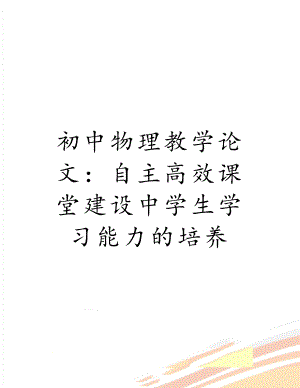 初中物理教学论
文：自主高效课
堂建设中学生学
习能力的培养